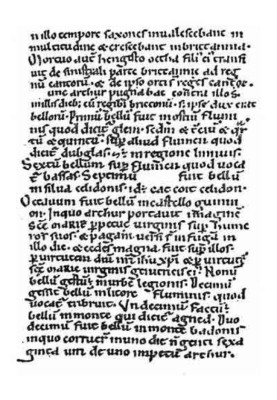 n illo tempore saxones inualescebant in
multitudine & crescebant inbrittannia.
Mortuo aut̄ hengisto octha fili' ei' transi
uit de sinistrali parte brittanniae ad reg
nū cantorū. & de ipso orti s̄ reges cantoꝝ.
Tunc arthur pugnabat contra illos.
inillis dieb; cū regib; brittonū. s; ipse dux erat
bellorū. Primū bellū fuit inostiū flumi
nis quod dicit᷑ glein. scdm̄ & tciū & qr
tū & quintū. sup̄ aliud flumen quod
dicit᷑ dubglas. & ē inregione linnuis.
Sextū bellū sup̄ flumen quod uoca
t᷑ bassas. Septimū fuit bellū
insilua celidonis. id ē cat coit celidon.
Octauum fuit bellū incastello guinni
on. Inquo arthur portauit imaginē
scē marie ꝑpetue uirginis sup̄ hume
ros suos. & pagani uersi s̄ infuga in
illo die. & cedes magna fuit sup̄ illos.
ꝑ uirtutem dn̄i nr̄i ihū xp̄i & ꝑ uirtutē
scē marie uirginis genitricis ei'. Nonū
bellū gestū ē inurbe legionis. Decimū
gessit bellū inlitore fluminis. quod
uocat᷑ tribruit. Undecimū factū ē
bellū inmonte qui dicit᷑ agned. Duo
decimū fuit bellū inmonte badonis.
inquo corruer̄ inuno die nongenti sexa
ginta uiri de uno impetu arthur.